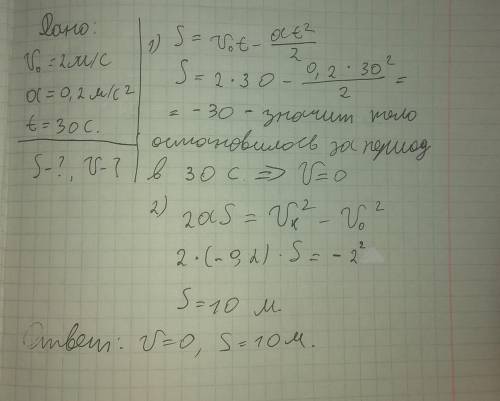 Дано:
V₀ = 2 м/с
a = 0,2 м/с²
t = 30 с.
S - ?, V - ?
1) S = V₀t - at²/2
S = 2 · 30 - 0,2 · 30²/2 =
= -30 - значит тело
остановилось за период
в 30 с. => V = 0
2) 2aS = Vк² - V₀²
2 · (-0,2) · S = -2²
S = 10 м.
Ответ: V = 0, S = 10 м.